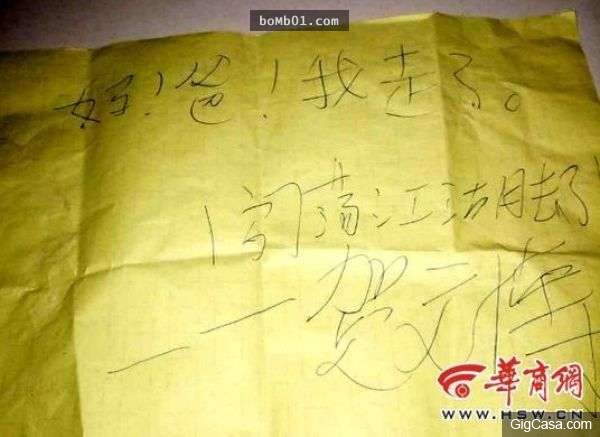 boMb01.com
妈！爸！我走了。
闯荡江湖去了
——贺文
華商網
WWW.HSW.CN
GigCasa.com